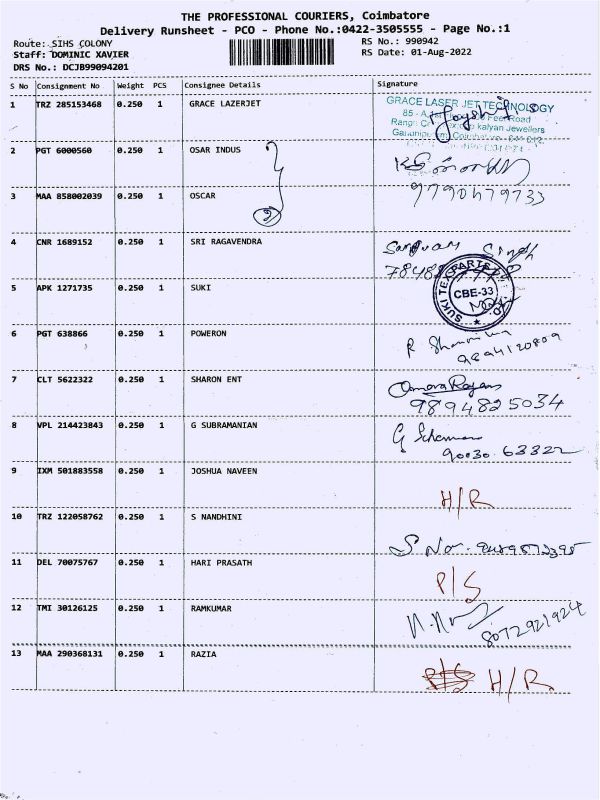 THE PROFESSIONAL COURIERS, Coimbatore
Delivery Runsheet - PCO - Phone No.:0422-3505555 - Page No.:1
Route: SIHS COLONY RS No.: 990942
Staff: DOMINIC XAVIER RS Date: 01-Aug-2022
DRS No.: DCJB99094201
S No Consignment No Weight PCS Consignee Details Signature
1 TRZ 285153468 0.250 1 GRACE LAZERJET
GRACE LASER JET TECHNOLOGY
85 - Road
kalyan Jewellers
2 PGT 6000560 0.250 1 OSAR INDUS
3 MAA 858002039 0.250 1 OSCAR 9790479733
4 CNR 1689152 0.250 1 SRI RAGAVENDRA Singh
5 APK 1271735 0.250 1 SUKI
CBE-33
6 PGT 638866 0.250 1 POWERON R
9894120809
7 CLT 5622322 0.250 1 SHARON ENT
9894825034
8 VPL 214423843 0.250 1 G SUBRAMANIAN G
90030 63322
9 IXM 501883558 0.250 1 JOSHUA NAVEEN
H/R
10 TRZ 122058762 0.250 1 S NANDHINI
11 DEL 70075767 0.250 1 HARI PRASATH
P/S
12 TMI 30126125 0.250 1 RAMKUMAR
8072921924
13 MAA 290368131 0.250 1 RAZIA
H/R